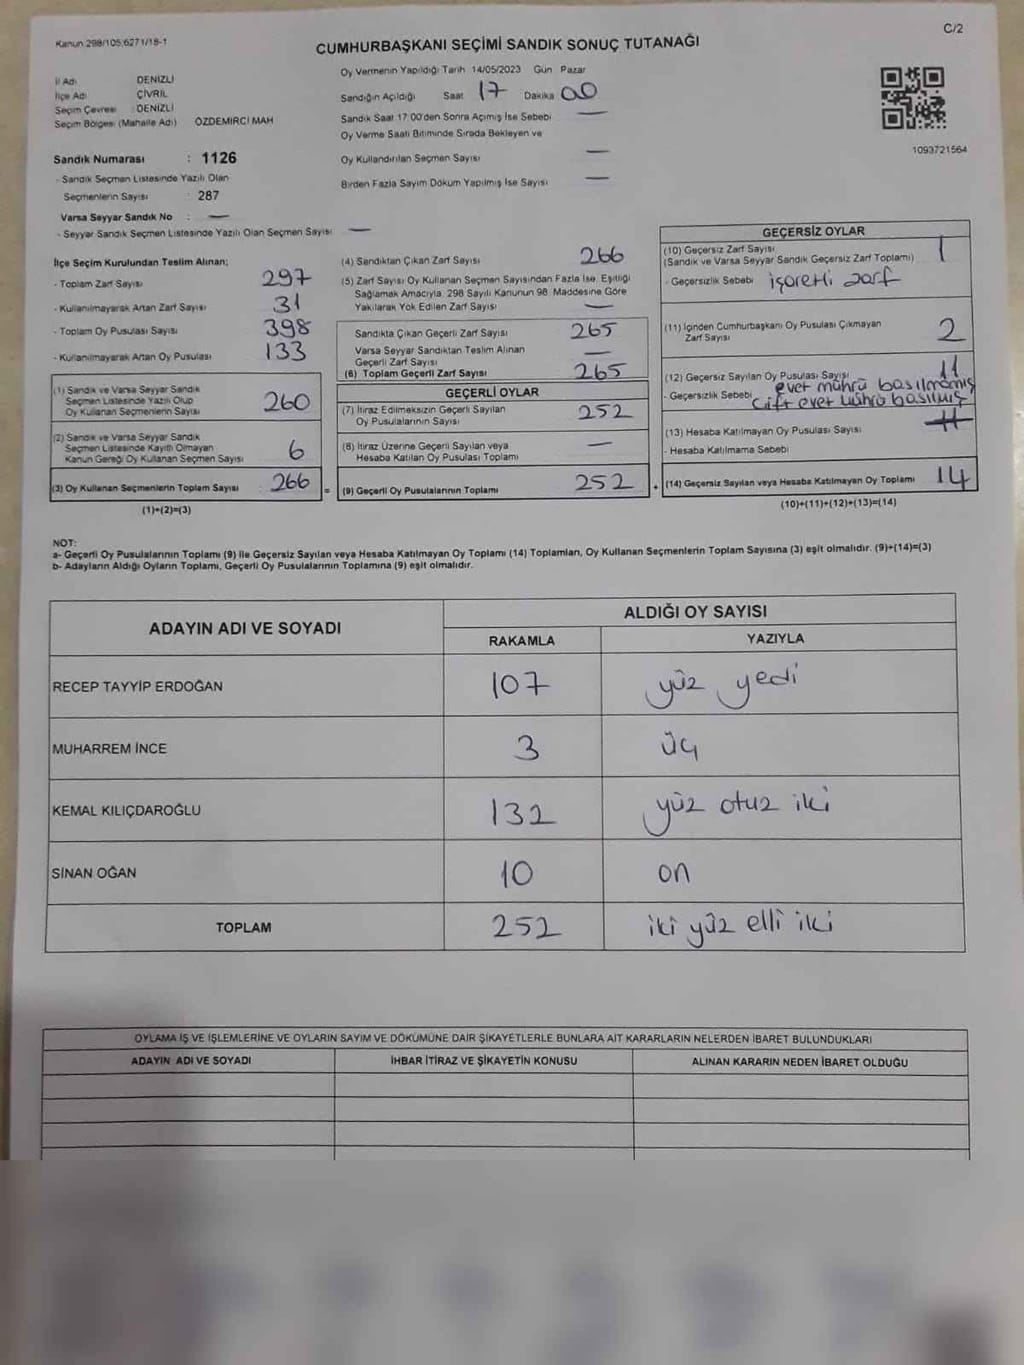 Kanun 298/105;6271/18-1
C/2
CUMHURBAŞKANI SEÇİMİ SANDIK SONUÇ TUTANAĞI
İl Adı DENİZLİ
İlçe Adı ÇİVRİL
Seçim Çevresi : DENİZLİ
Seçim Bölgesi (Mahalle Adı) ÖZDEMİRCİ MAH
Sandık Numarası : 1126
- Sandık Seçmen Listesinde Yazılı Olan
Seçmenlerin Sayısı : 287
Varsa Seyyar Sandık No : —
- Seyyar Sandık Seçmen Listesinde Yazılı Olan Seçmen Sayısı —
Oy Vermenin Yapıldığı Tarih 14/05/2023 Gün Pazar
Sandığın Açıldığı Saat 17 Dakika 00
Sandık Saat 17:00'den Sonra Açımış İse Sebebi —
Oy Verme Saati Bitiminde Sırada Bekleyen ve
Oy Kullandırılan Seçmen Sayısı —
Birden Fazla Sayım Döküm Yapılmış İse Sayısı —
1093721564
İlçe Seçim Kurulundan Teslim Alınan;
- Toplam Zarf Sayısı 297
- Kullanılmayarak Artan Zarf Sayısı 31
- Toplam Oy Pusulası Sayısı 398
- Kullanılmayarak Artan Oy Pusulası 133
(1) Sandık ve Varsa Seyyar Sandık
Seçmen Listesinde Yazılı Olup
Oy Kullanan Seçmenlerin Sayısı 260
(2) Sandık ve Varsa Seyyar Sandık
Seçmen Listesinde Kayıtlı Olmayan
Kanun Gereği Oy Kullanan Seçmen Sayısı 6
(3) Oy Kullanan Seçmenlerin Toplam Sayısı 266 =
(1)+(2)=(3)
(4) Sandıktan Çıkan Zarf Sayısı 266
(5) Zarf Sayısı Oy Kullanan Seçmen Sayısından Fazla İse, Eşitliği
Sağlamak Amacıyla, 298 Sayılı Kanunun 98. Maddesine Göre
Yakılarak Yok Edilen Zarf Sayısı —
Sandıkta Çıkan Geçerli Zarf Sayısı 265
Varsa Seyyar Sandıktan Teslim Alınan
Geçerli Zarf Sayısı —
(6) Toplam Geçerli Zarf Sayısı 265
GEÇERLİ OYLAR
(7) İtiraz Edilmeksizin Geçerli Sayılan
Oy Pusulalarının Sayısı 252
(8) İtiraz Üzerine Geçerli Sayılan veya
Hesaba Katılan Oy Pusulası Toplamı —
(9) Geçerli Oy Pusulalarının Toplamı 252 +
GEÇERSİZ OYLAR
(10) Geçersiz Zarf Sayısı 1
(Sandık ve Varsa Seyyar Sandık Geçersiz Zarf Toplamı)
- Geçersizlik Sebebi işaretli zarf
(11) İçinden Cumhurbaşkanı Oy Pusulası Çıkmayan
Zarf Sayısı 2
(12) Geçersiz Sayılan Oy Pusulası Sayısı 11
- Geçersizlik Sebebi evet mührü basılmamış
çift evet mührü basılmış
(13) Hesaba Katılmayan Oy Pusulası Sayısı
- Hesaba Katılmama Sebebi
(14) Geçersiz Sayılan veya Hesaba Katılmayan Oy Toplamı 14
(10)+(11)+(12)+(13)=(14)
NOT:
a- Geçerli Oy Pusulalarının Toplamı (9) ile Geçersiz Sayılan veya Hesaba Katılmayan Oy Toplamı (14) Toplamları, Oy Kullanan Seçmenlerin Toplam Sayısına (3) eşit olmalıdır. (9)+(14)=(3)
b- Adayların Aldığı Oyların Toplamı, Geçerli Oy Pusulalarının Toplamına (9) eşit olmalıdır.
ADAYIN ADI VE SOYADI
ALDIĞI OY SAYISI
RAKAMLA YAZIYLA
RECEP TAYYİP ERDOĞAN 107 yüz yedi
MUHARREM İNCE 3 üç
KEMAL KILIÇDAROĞLU 132 yüz otuz iki
SİNAN OĞAN 10 on
TOPLAM 252 iki yüz elli iki
OYLAMA İŞ VE İŞLEMLERİNE VE OYLARIN SAYIM VE DÖKÜMÜNE DAİR ŞİKAYETLERLE BUNLARA AİT KARARLARIN NELERDEN İBARET BULUNDUKLARI
ADAYIN ADI VE SOYADI İHBAR İTİRAZ VE ŞİKAYETİN KONUSU ALINAN KARARIN NEDEN İBARET OLDUĞU